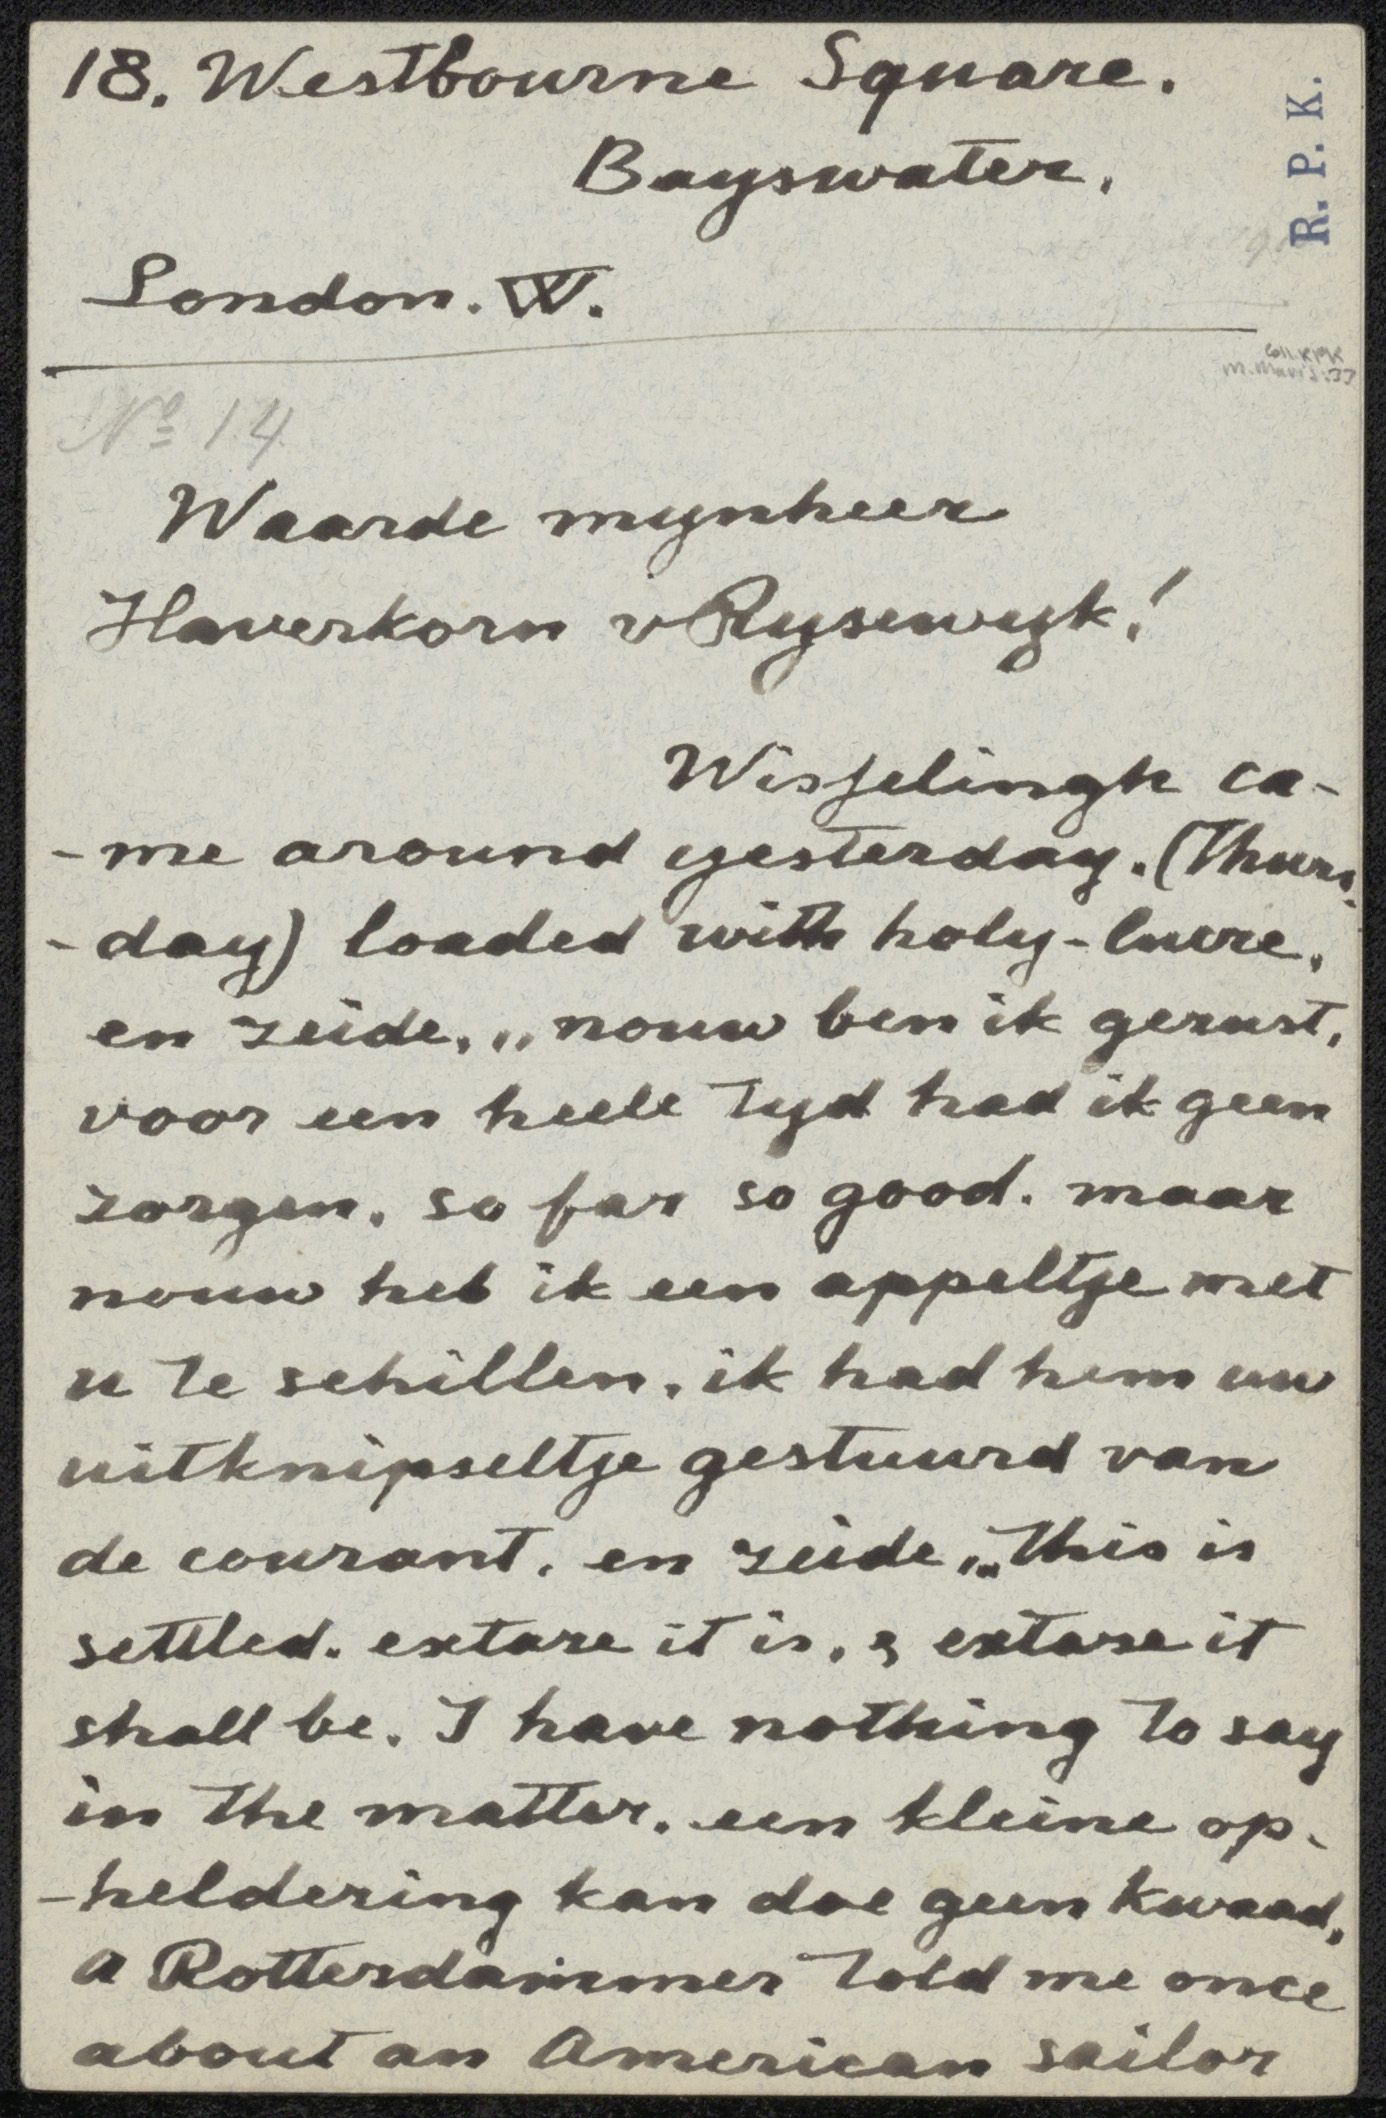 18. Westbourne Square.
R. P. K.
Bayswater.
London. W.
No 14
Waarde mynheer
Haverkorn v Rysewyk!
Wisselingh ca-
-me around yesterday. (Thurs-
-day) loaded with holy-lucre.
en zeide. „nouw ben ik gerust,
voor een heele tyd had ik geen
zorgen. so far so good. maar
nouw heb ik een appeltje met
u te schillen. ik had hem uw
uitknipseltje gestuurd van
de courant. en zeide „This is
settled. extase it is. & extase it
shall be. I have nothing to say
in the matter. een kleine op-
-heldering kan doe geen kwaad,
a Rotterdammer told me once
about an American sailor